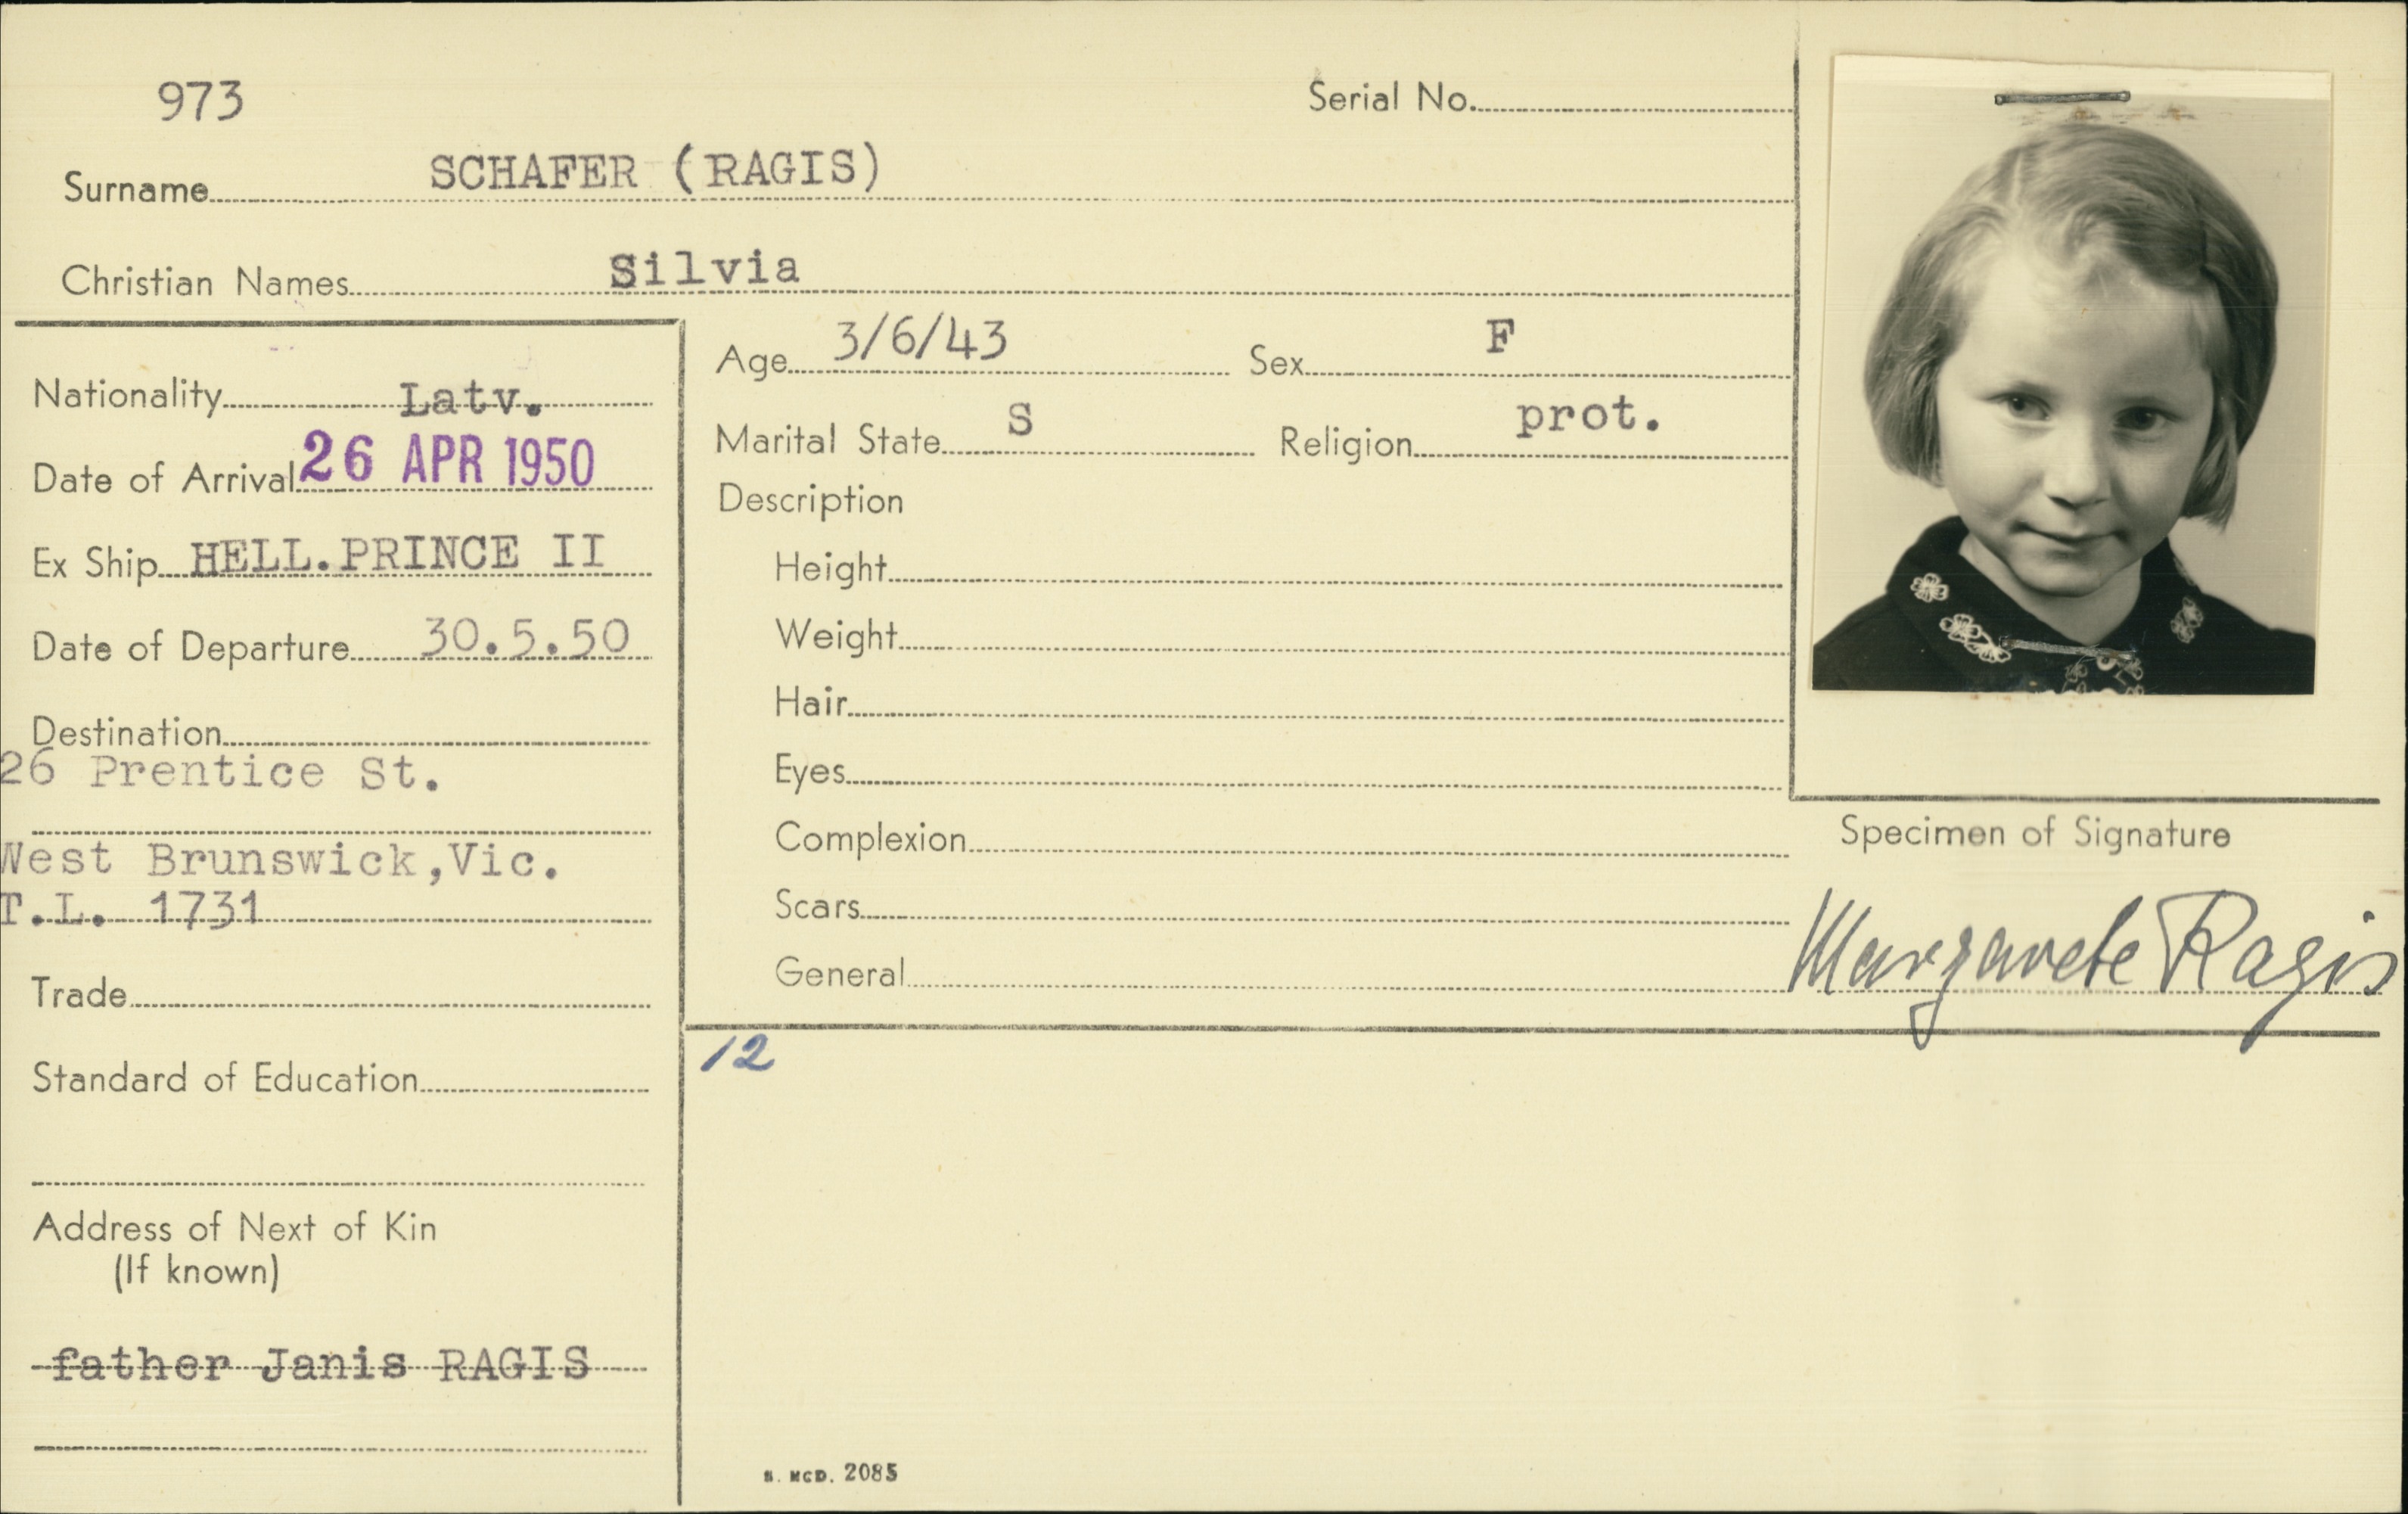 973
Serial No.
Surname SCHAFER (RAGIS)
Christian Names Silvia
Nationality Latv.
Date of Arrival 26 APR 1950
Ex Ship HELL.PRINCE II
Date of Departure 30.5.50
Destination
26 Prentice St.
West Brunswick,Vic.
T.L. 1731
Trade
Standard of Education
Address of Next of Kin
(If known)
father Janis RAGIS
Age 3/6/43 Sex F
Marital State S Religion prot.
Description
Height
Weight
Hair
Eyes
Complexion
Scars
General
Specimen of Signature
Margarete Ragis
12
S. MCD. 2085